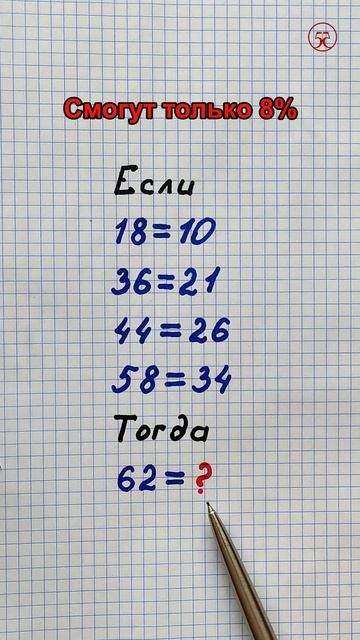 Смогут только 8%
Если
18=10
36=21
44=26
58=34
Тогда
62=?